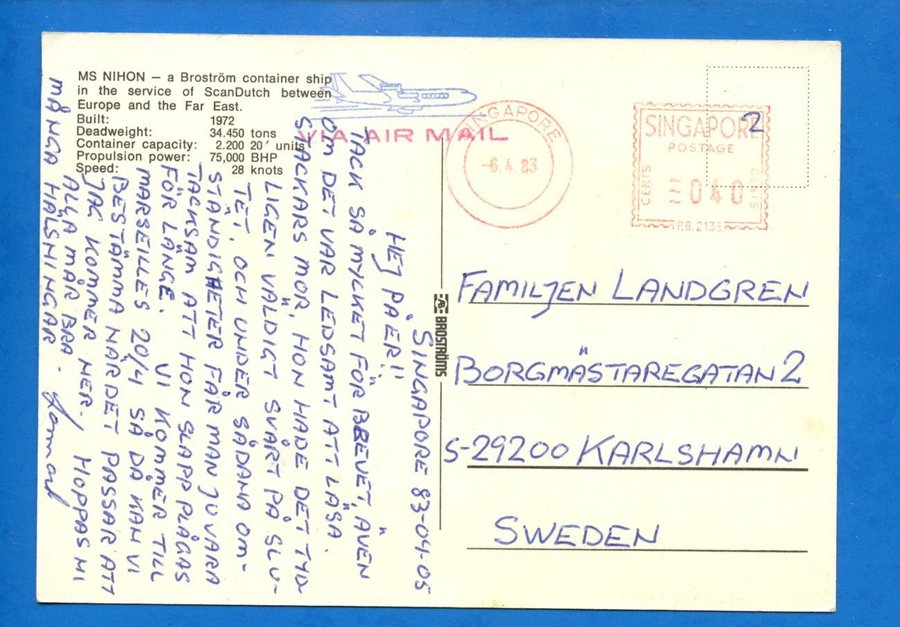 MS NIHON – a Broström container ship
in the service of ScanDutch between
Europe and the Far East.
Built: 1972
Deadweight: 34.450 tons
Container capacity: 2.200 20' units
Propulsion power: 75,000 BHP
Speed: 28 knots
VIA AIR MAIL
SINGAPORE
-6.4.83
SINGAPORE
POSTAGE
CENTS
040
CENTS
P.B. 2135
2
BROSTRÖMS
SINGAPORE 83-04-05
HEJ PÅ ER!!
TACK SÅ MYCKET FÖR BREVET, ÄVEN
OM DET VAR LEDSAMT ATT LÄSA.
STACKARS MOR, HON HADE DET TYD-
LIGEN VÄLDIGT SVÅRT PÅ SLU-
TET, OCH UNDER SÅDANA OM-
STÄNDIGHETER FÅR MAN JU VARA
TACKSAM ATT HON SLAPP PLÅGAS
FÖR LÄNGE. VI KOMMER TILL
MARSEILLES 20/4 SÅ DÅ KAN VI
BESTÄMMA NÄR DET PASSAR ATT
JAG KOMMER NER. HOPPAS NI
ALLA MÅR BRA.
MÅNGA HÄLSNINGAR
FAMILJEN LANDGREN
BORGMÄSTAREGATAN 2
S-29200 KARLSHAMN
SWEDEN